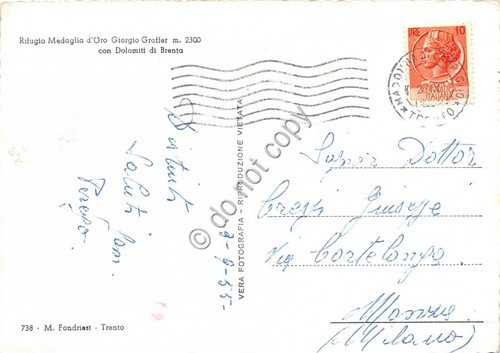 Rifugio Medaglia d'Oro Giorgio Graffer m. 2300
con Dolomiti di Brenta
LIRE 10
MADONNA DI
TRENTO
Distinti
Saluti
9-9-55-
VERA FOTOGRAFIA - RIPRODUZIONE VIETATA
do not copy
Signor Dottor
Crespi Giuseppe
Via Cortelonga
Monza
(Milano)
738 - M. Fondriest - Trento